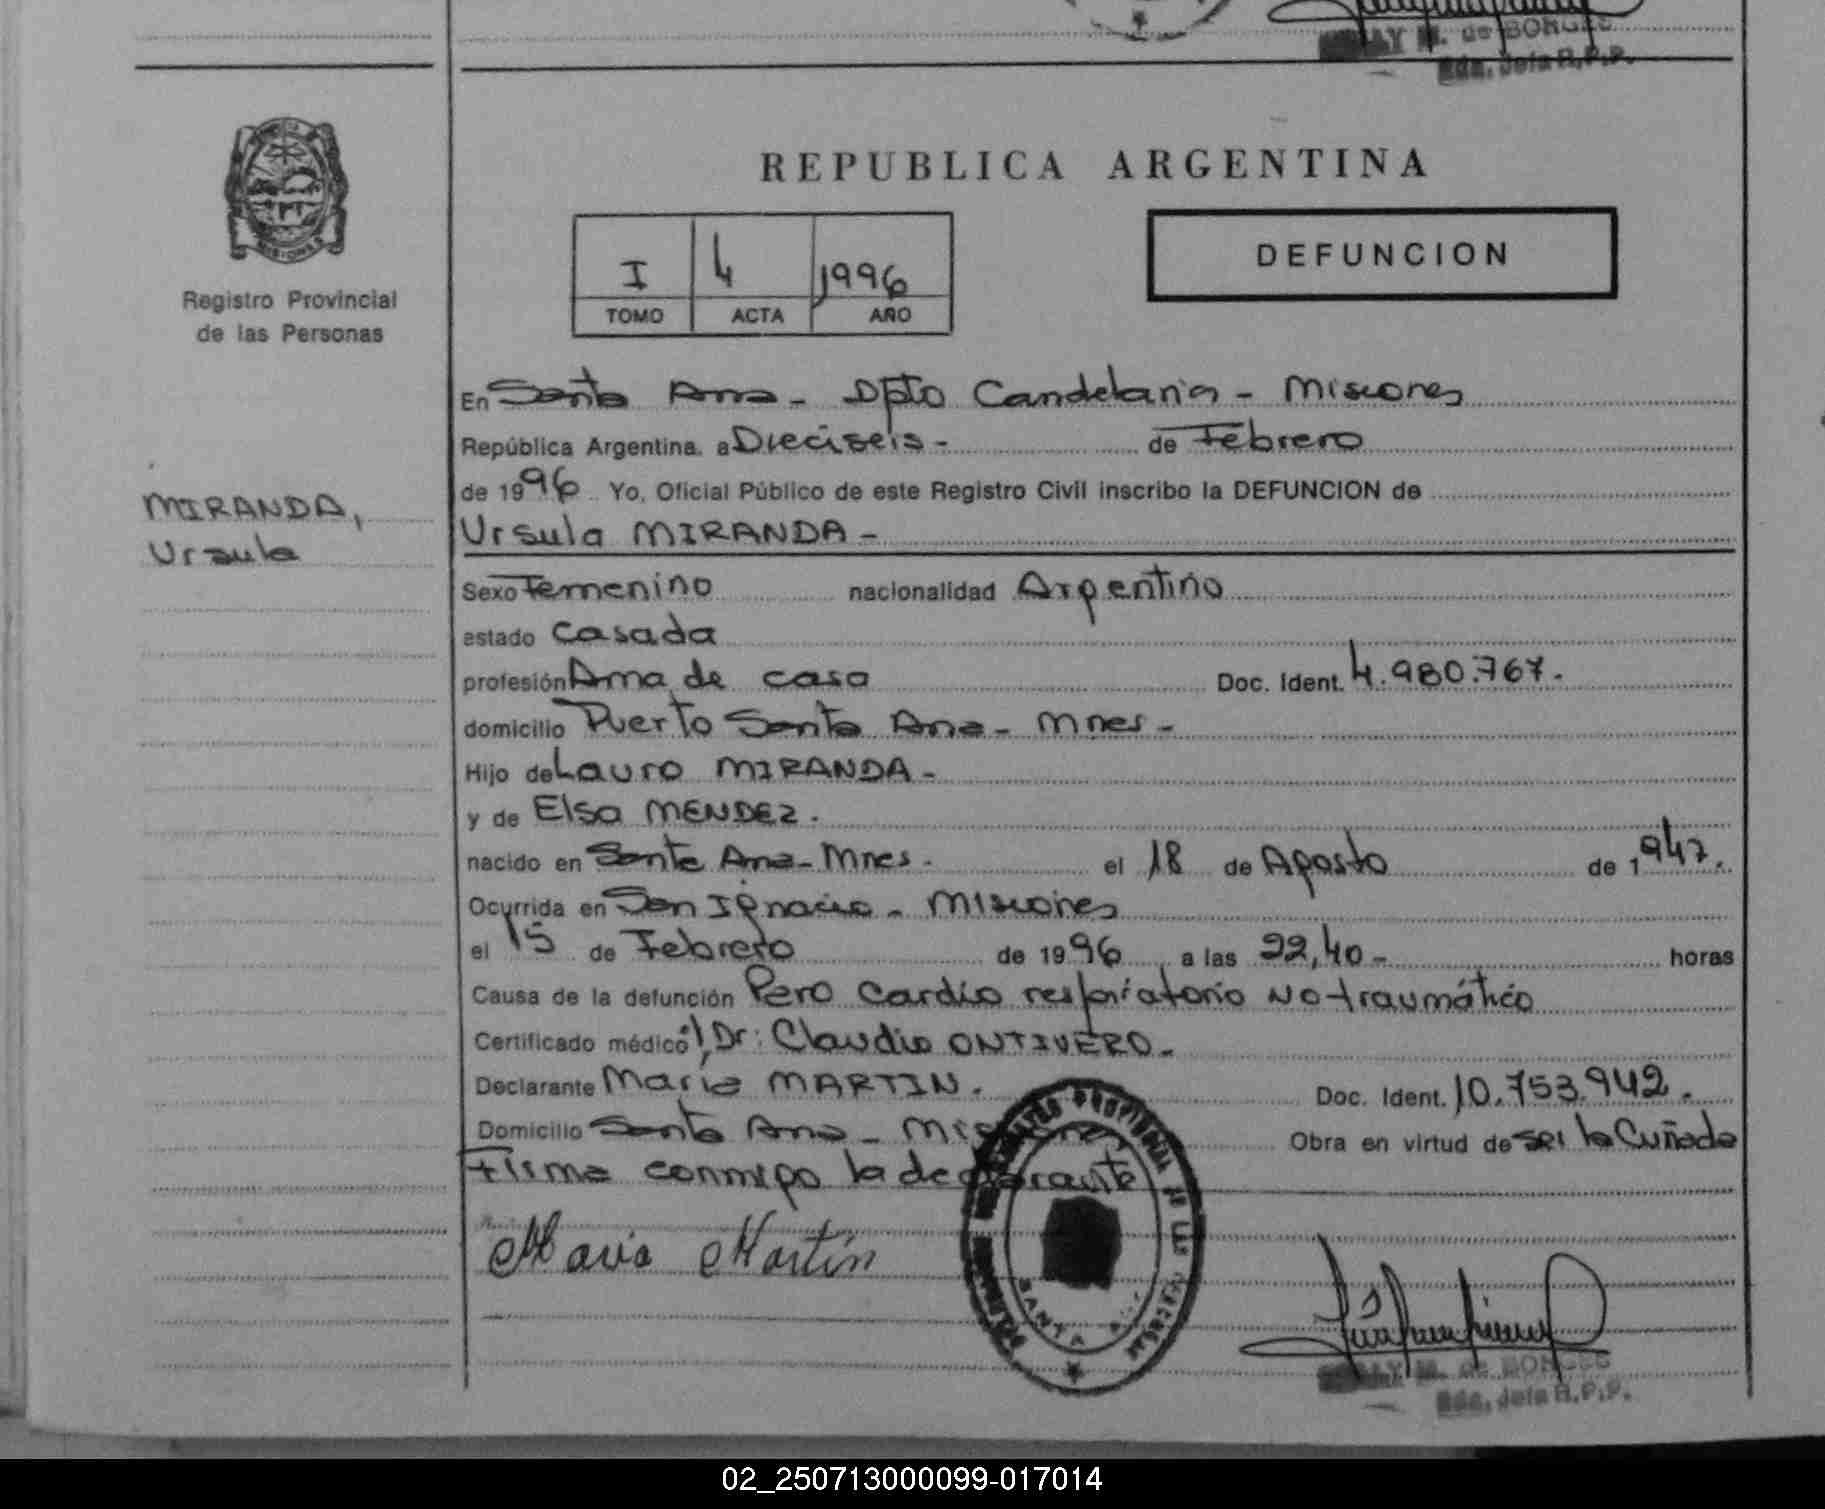 M. de BORGES
Jefa R.P.P.
MISIONES
Registro Provincial
de las Personas
REPUBLICA ARGENTINA
I 4 1996
TOMO ACTA AÑO
DEFUNCION
MIRANDA,
Ursula
En Santa Ana - Dpto Candelaria - Misiones
República Argentina, a Dieciseis - de Febrero
de 1996 Yo, Oficial Público de este Registro Civil inscribo la DEFUNCION de
Ursula MIRANDA -
Sexo Femenino nacionalidad Argentino
estado Casada
profesión Ama de casa Doc. Ident. 4.980.767.
domicilio Puerto Santa Ana - Mnes -
Hijo de Lauro MIRANDA -
y de Elsa MENDEZ.
nacido en Santa Ana - Mnes. el 18 de Agosto de 1947.
Ocurrida en San Ignacio - Misiones
el 15 de Febrero de 1996 a las 22,40 - horas
Causa de la defunción Paro cardio respiratorio No traumático
Certificado médico Dr: Claudio ONTIVERO -
Declarante María MARTIN. Doc. Ident. 10.753.942.
Domicilio Santa Ana - Misiones Obra en virtud de ser la Cuñada
Firma conmigo la declarante
Maria Martin
PROVINCIAL DE LAS PERSONAS
SANTA
M. de BORGES
Jefa R.P.P.
02_250713000099-017014